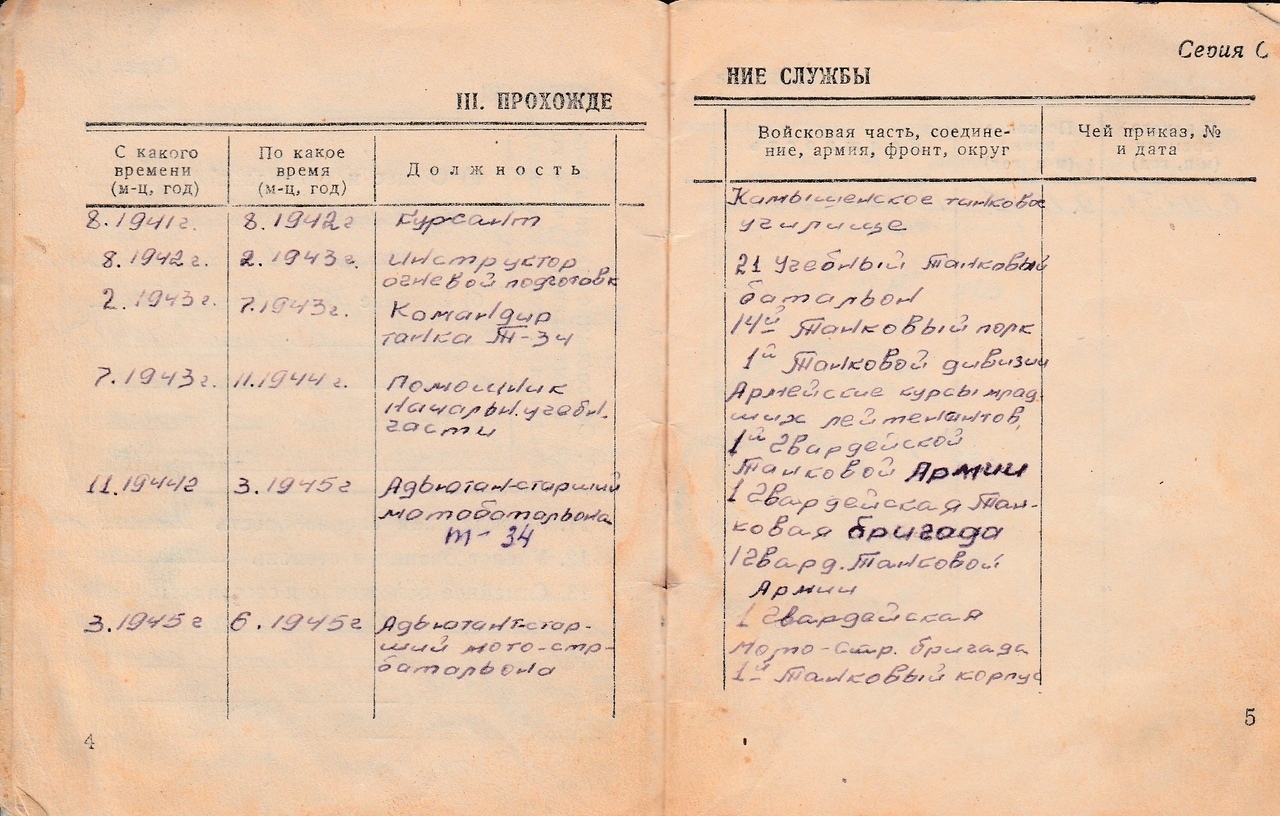 III. ПРОХОЖДЕ
С какого времени (м-ц, год)
По какое время (м-ц, год)
Должность
8.1941г. 8.1942г Курсант
8.1942г. 2.1943г. Инструктор
огневой подготовк
2.1943г. 7.1943г. Командир
танка Т-34
7.1943г. 11.1944г. Помощник
Начальн. учебн.
части
11.1944г 3.1945г Адьютан-старший
мотобатальона
Т-34
3.1945г 6.1945г Адьютант-стар-
ший мото-стр-
батальона
4
Серия С
НИЕ СЛУЖБЫ
Войсковая часть, соедине-
ние, армия, фронт, округ
Чей приказ, №
и дата
Камышенское танковое
училище
21 Учебный Танковый
батальон
14й Танковый полк
1й Танковой дивизии
Армейские курсы млад
ших лейтенантов,
1й Гвардейской
Танковой Армии
1 Гвардейская Тан-
ковая бригада
1 Гвард. Танковой
Армии
1 Гвардейская
мото-стр. бригада
1й Танковый корпус
5